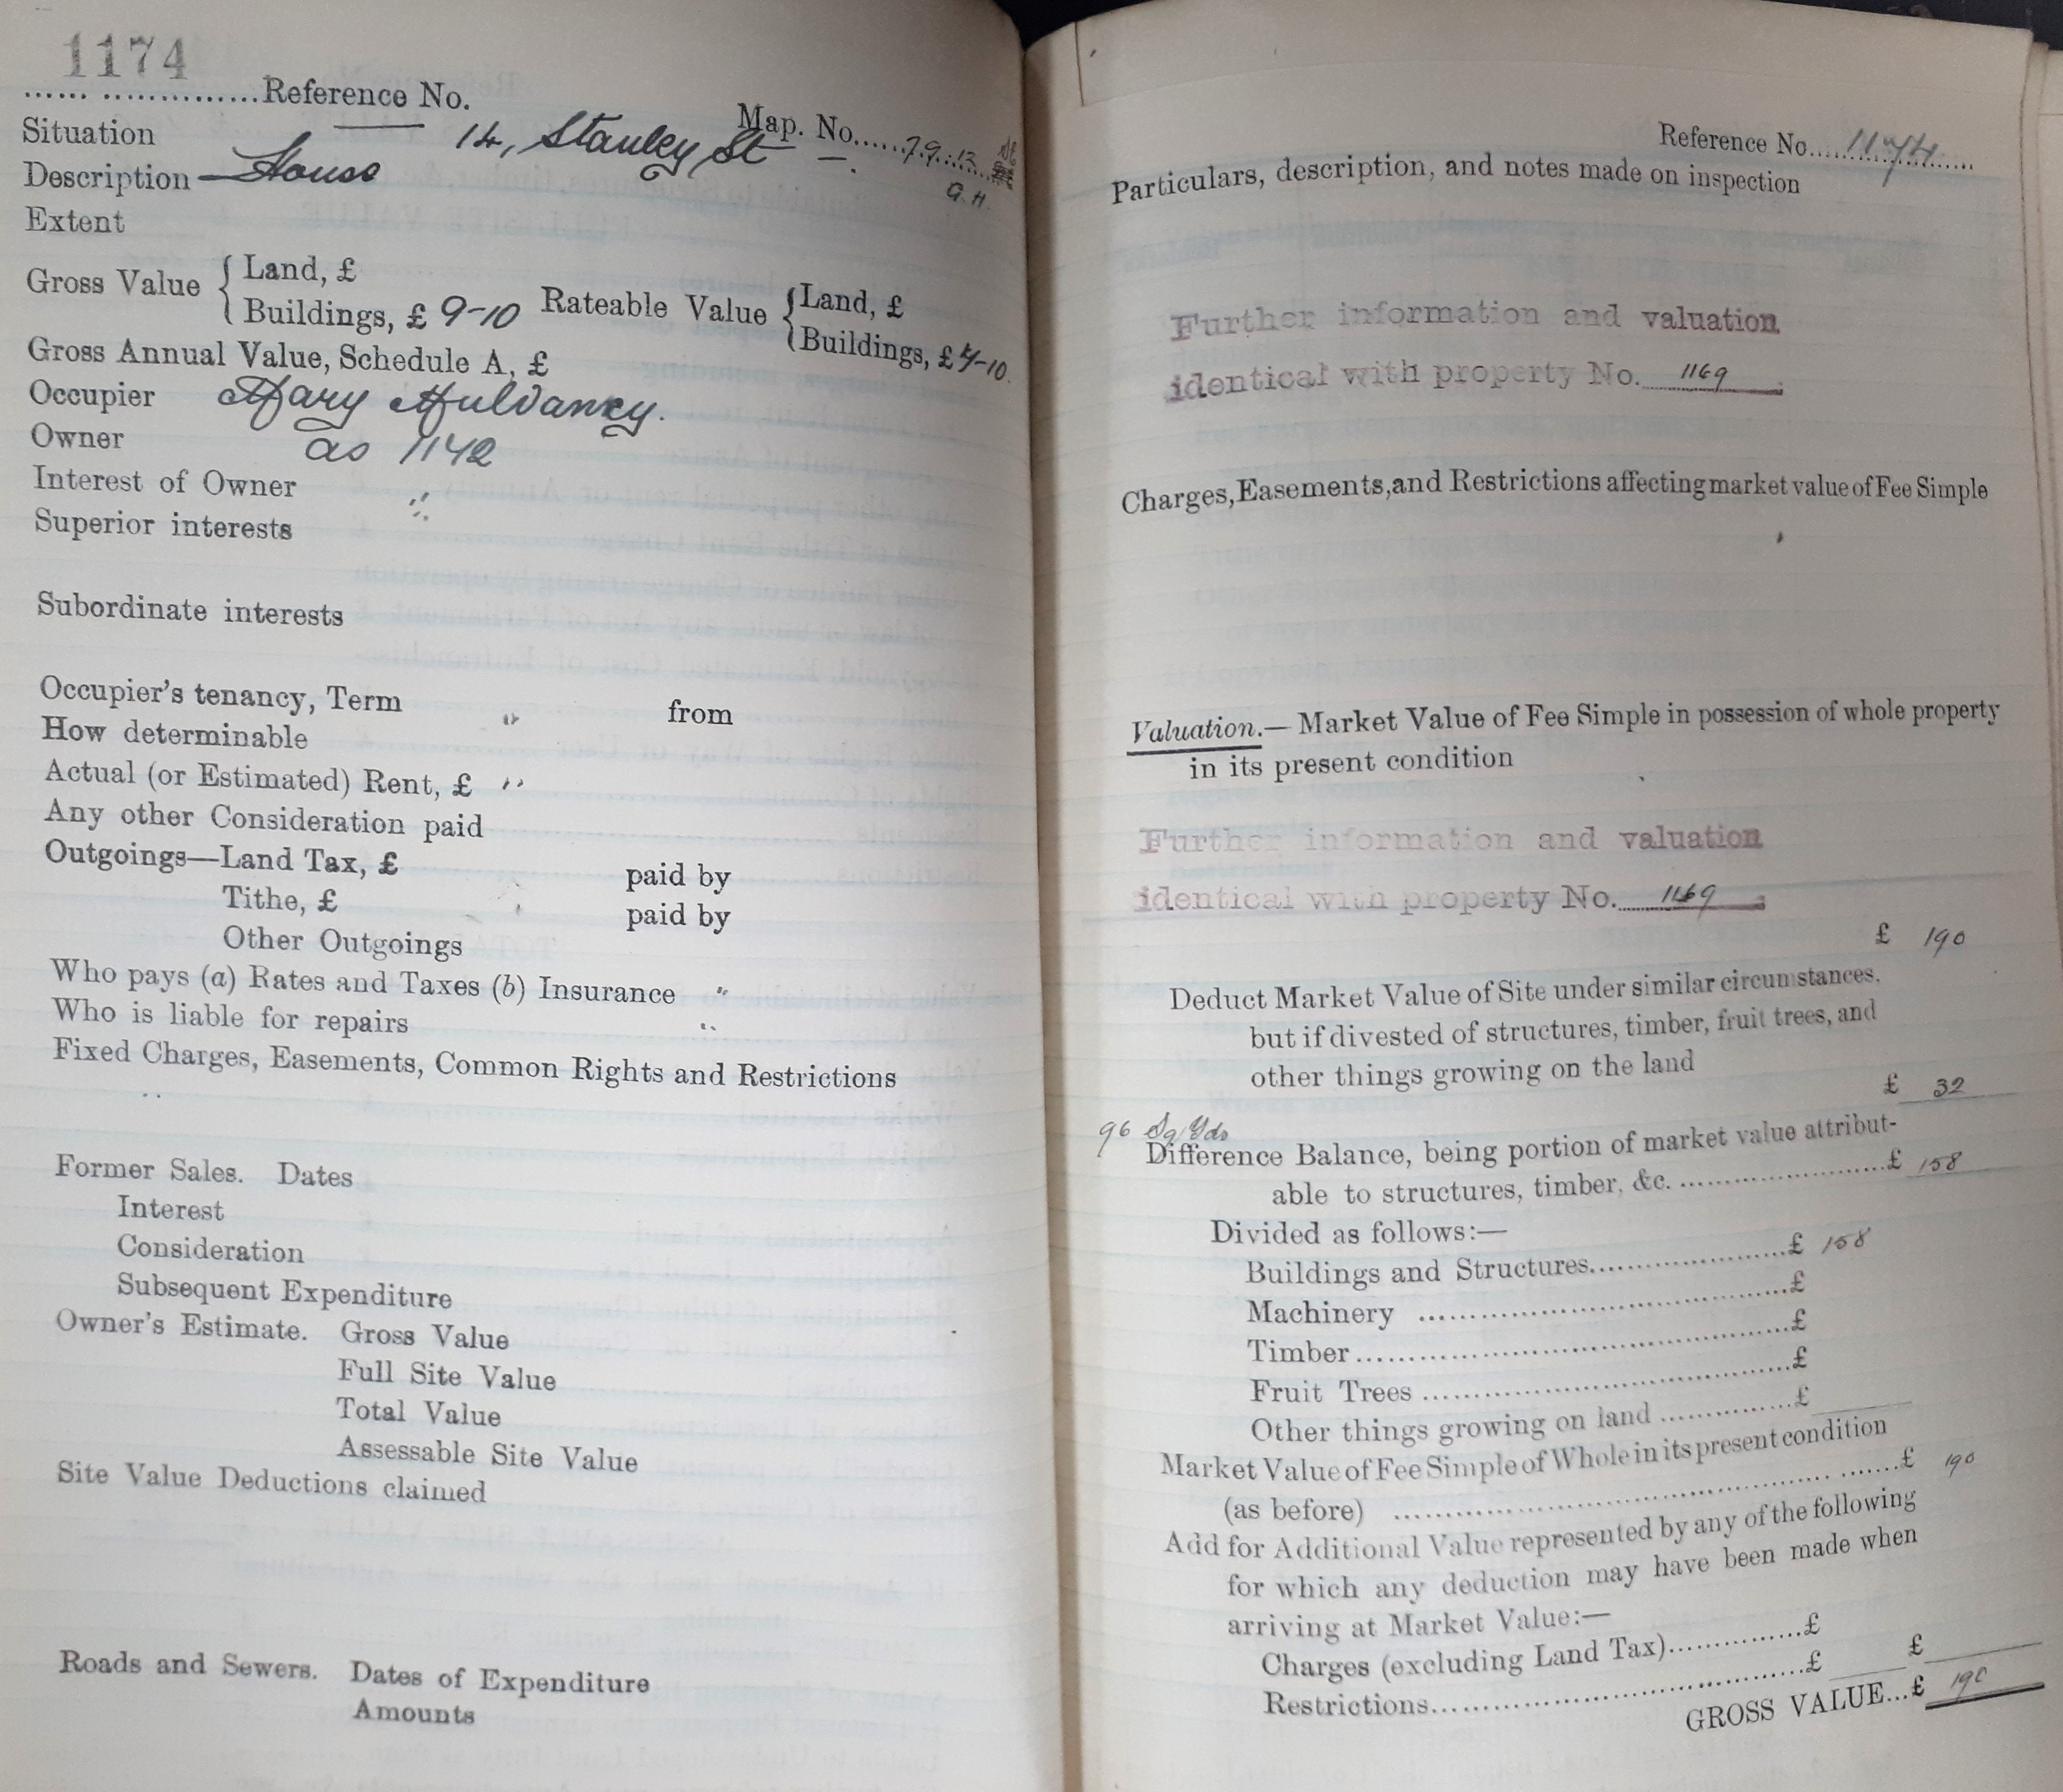 1174
...... ...............Reference No.
Map. No......79.:13
G.H.
Situation 14, Stanley St
Description House
Extent
Gross Value { Land, £
Buildings, £ 9-10
Rateable Value { Land, £
Buildings, £ -10
Gross Annual Value, Schedule A, £
Occupier Mary Muldaney.
Owner as 1142
Interest of Owner "
Superior interests
Subordinate interests
Occupier's tenancy, Term " from
How determinable
Actual (or Estimated) Rent, £ "
Any other Consideration paid
Outgoings—Land Tax, £ paid by
Tithe, £ paid by
Other Outgoings
Who pays (a) Rates and Taxes (b) Insurance "
Who is liable for repairs "
Fixed Charges, Easements, Common Rights and Restrictions
Former Sales. Dates
Interest
Consideration
Subsequent Expenditure
Owner's Estimate. Gross Value
Full Site Value
Total Value
Assessable Site Value
Site Value Deductions claimed
Roads and Sewers. Dates of Expenditure
Amounts
Reference No....1174......
Particulars, description, and notes made on inspection
Further information and valuation
identical with property No. 1169
Charges, Easements, and Restrictions affecting market value of Fee Simple
Valuation.— Market Value of Fee Simple in possession of whole property
in its present condition
Further information and valuation
identical with property No. 1169
£ 190
Deduct Market Value of Site under similar circumstances,
but if divested of structures, timber, fruit trees, and
other things growing on the land
£ 32
96 Sq Yds
Difference Balance, being portion of market value attribut-
able to structures, timber, &c. ........................£ 158
Divided as follows:—
Buildings and Structures........................£ 158
Machinery ........................£
Timber........................£
Fruit Trees ........................£
Other things growing on land ...............£
Market Value of Fee Simple of Whole in its present condition
(as before) ........................£ 190
Add for Additional Value represented by any of the following
for which any deduction may have been made when
arriving at Market Value:—
Charges (excluding Land Tax)...............£
Restrictions........................£ £
GROSS VALUE...£ 190